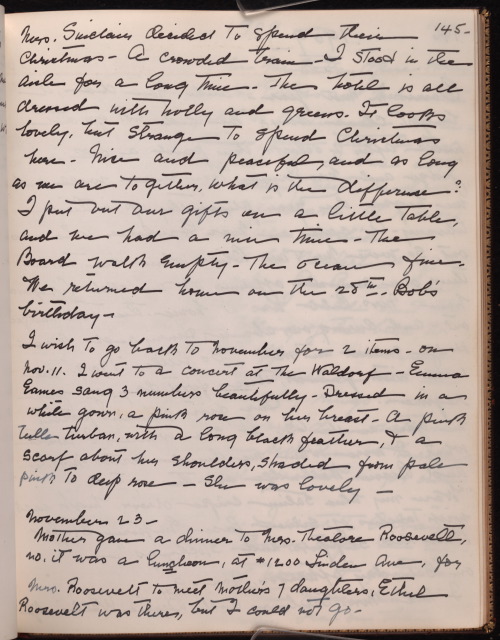 145-
Mrs. Sinclair decided to spend their
Christmas - A crowded train - I stood in the
aisle for a long time - The hotel is all
dressed with holly and greens. It looks
lovely, but strange to spend Christmas
here - Nice and peaceful, and as long
as we are together, what is the difference?
I put out our gifts on a little table,
and we had a nice time - The
Board walk empty - The ocean fine -
We returned home on the 28th - Bob's
birthday -
I wish to go back to November for 2 items - on
Nov. 11. I went to a concert at the Waldorf - Emma
Eames sang 3 numbers beautifully - Dressed in a
white gown, a pink rose on her breast - A pink
tulle turban, with a long black feather, & a
scarf about her shoulders, shaded from pale
pink to deep rose - She was lovely -
November 23 -
Mother gave a dinner to Mrs. Theodore Roosevelt,
no, it was a luncheon, at #1200 Linden Ave, for
Mrs. Roosevelt to meet Mother's 7 daughters, Ethel
Roosevelt was there, but I could not go -